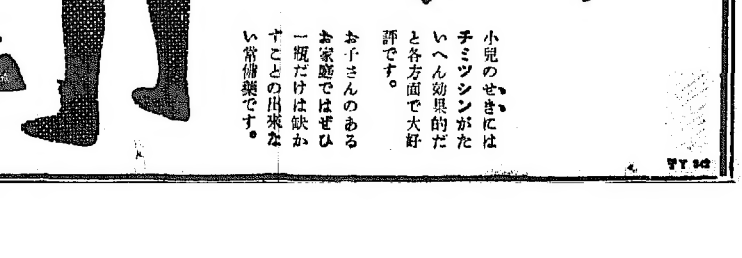 小兒のせきには
チミツシンがた
いへん効果的だ
と各方面で大好
評です。
お子さんのある
お家庭ではぜひ
一瓶だけは缺か
すことの出來な
い常備藥です。